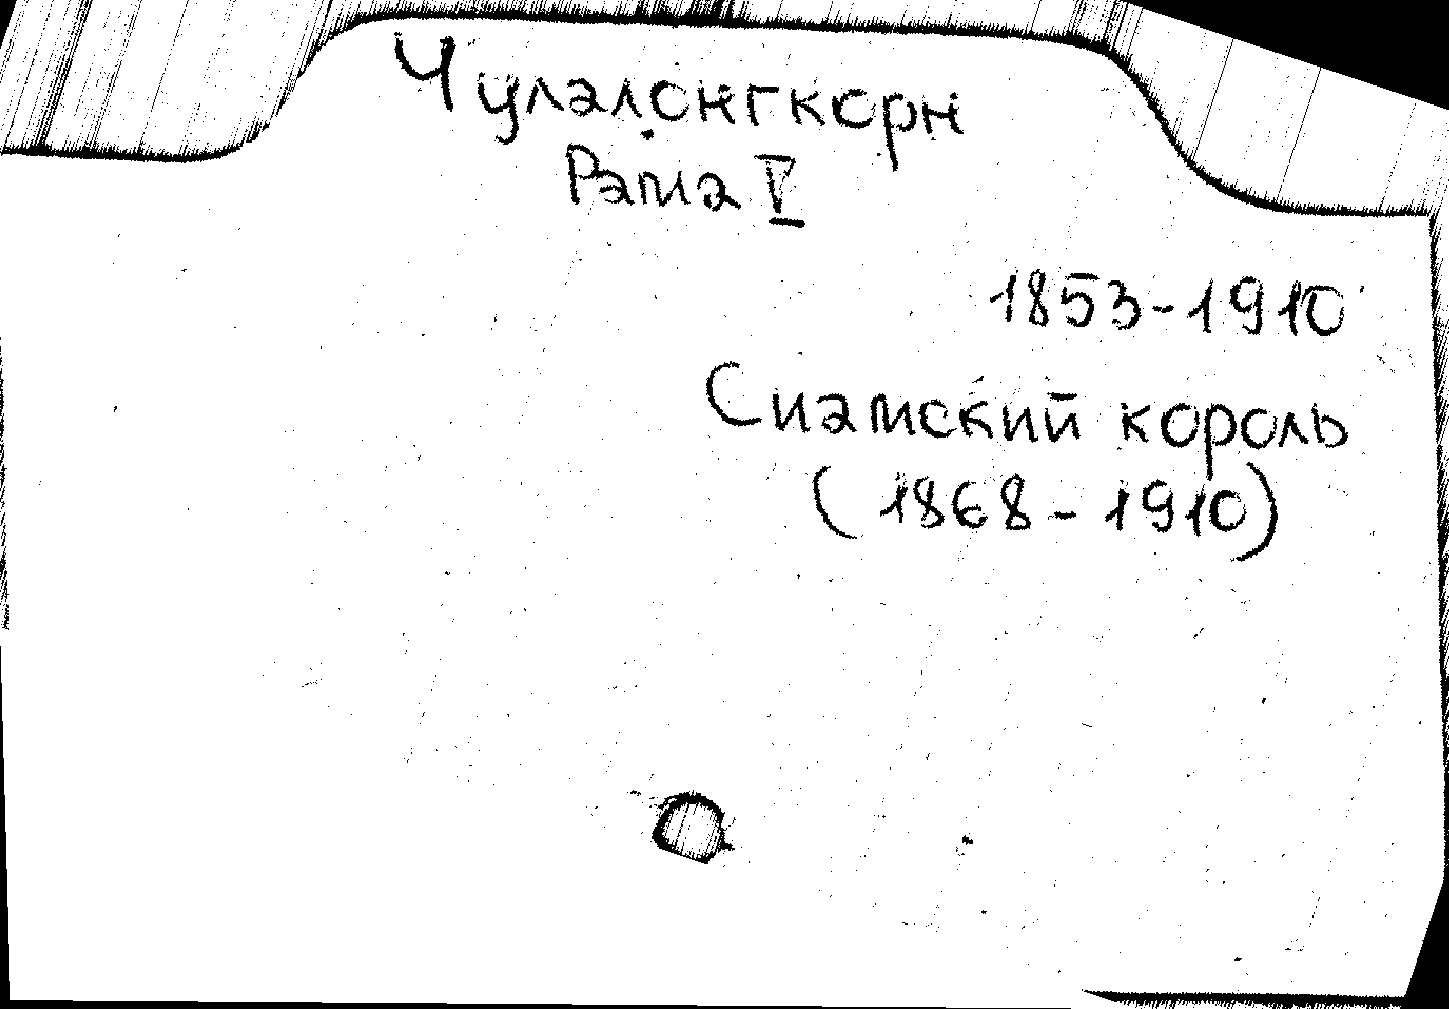 Чулалонгкорн
Рама V
1853-1910
Сиамский король
(1868-1910)